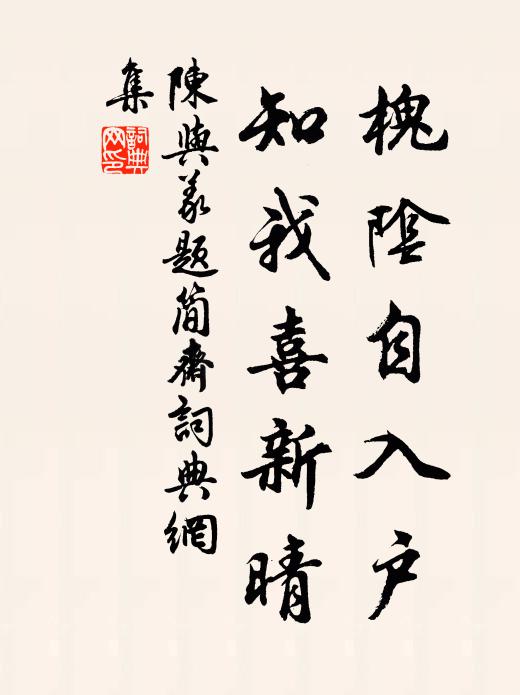 槐陰自入户
知我喜新晴
陳與義題简齋詞典網
集
詞典網印